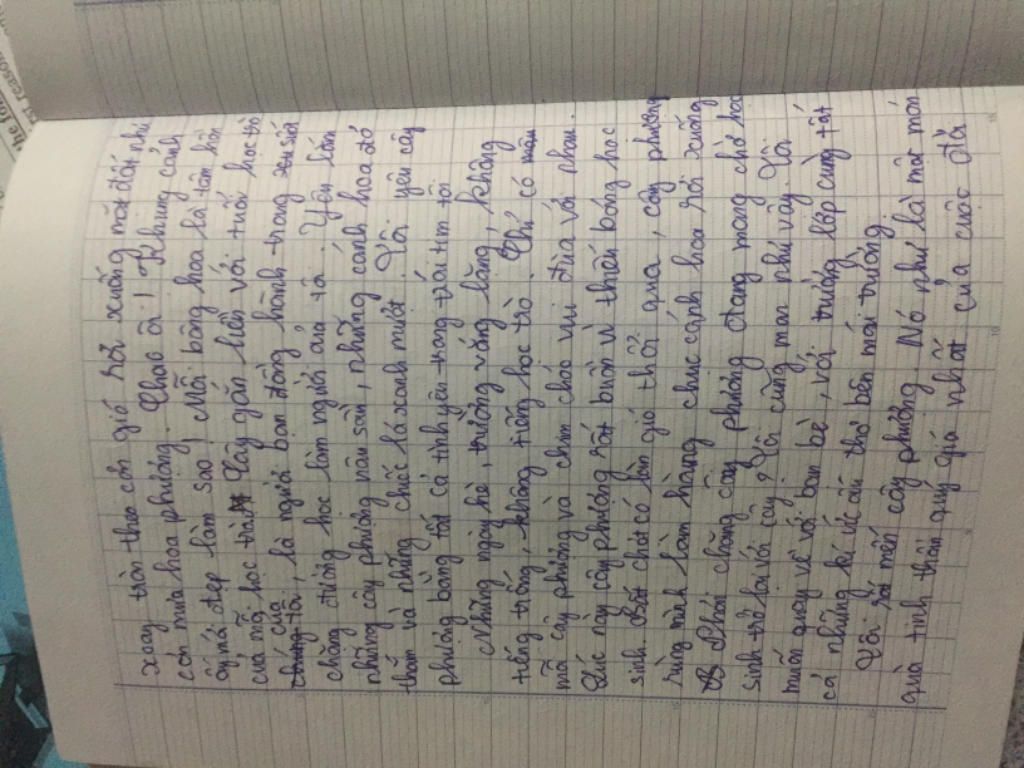 xoay tròn theo cơn gió rơi xuống mặt đất như
cơn mưa hoa phượng. Chao ôi! Khung cảnh
ấy mới đẹp làm sao! Mỗi bông hoa là tâm hồn
của mỗi học trò. Cây gắn liền với tuổi học trò
của
chúng tôi, là người bạn đồng hành trong suốt
chặng đường học làm người của tôi. Yêu lắm
những cây phượng năm sần, những cánh hoa đỏ
thắm và những chiếc lá xanh mướt. Tôi yêu cây
phượng bằng tất cả tình yêu trong trái tim tôi
Những ngày hè, trường vắng lặng, không
tiếng trống, không tiếng học trò. Chỉ có
mỗi cây phượng và chim chóc vui đùa với nhau.
Lúc này cây phượng rất buồn vì thiếu bóng học
sinh. Bất chợt có làn gió thổi qua, cây phượng
rùng mình làm hàng chục cánh hoa rơi xuống
Phải chăng cây phượng đang mong chờ học
sinh trở lại với cây? Tôi cũng mong như vậy. Tôi
muốn quay về với bạn bè, với trường lớp cùng tất
cả những kí ức ấu thơ bên mái trường
Tôi rất mến cây phượng. Nó như là một món
quà tinh thần quý giá nhất của cuộc đời
the
reason